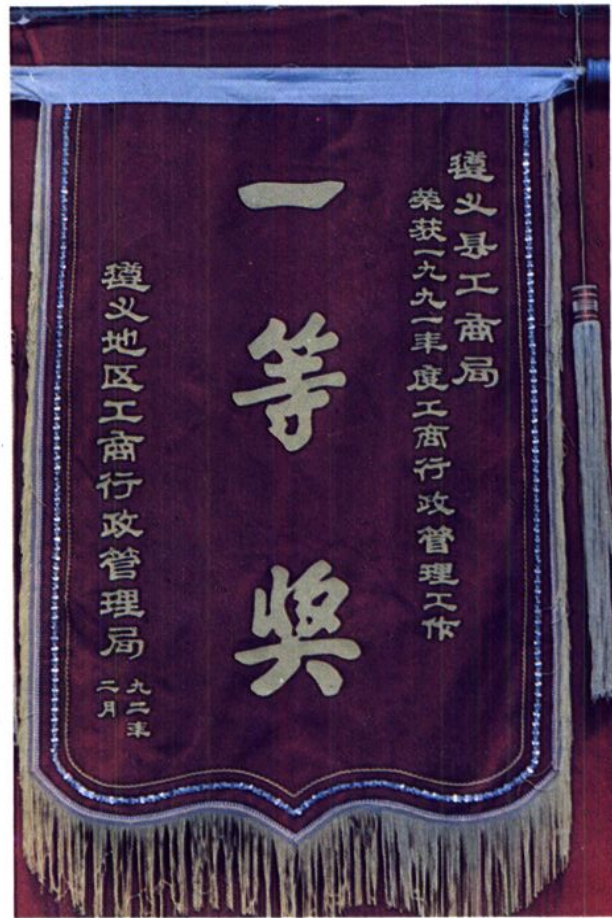 遵义县工商局
荣获一九九一年度工商行政管理工作
一等奖
遵义地区工商行政管理局
九二年
二月